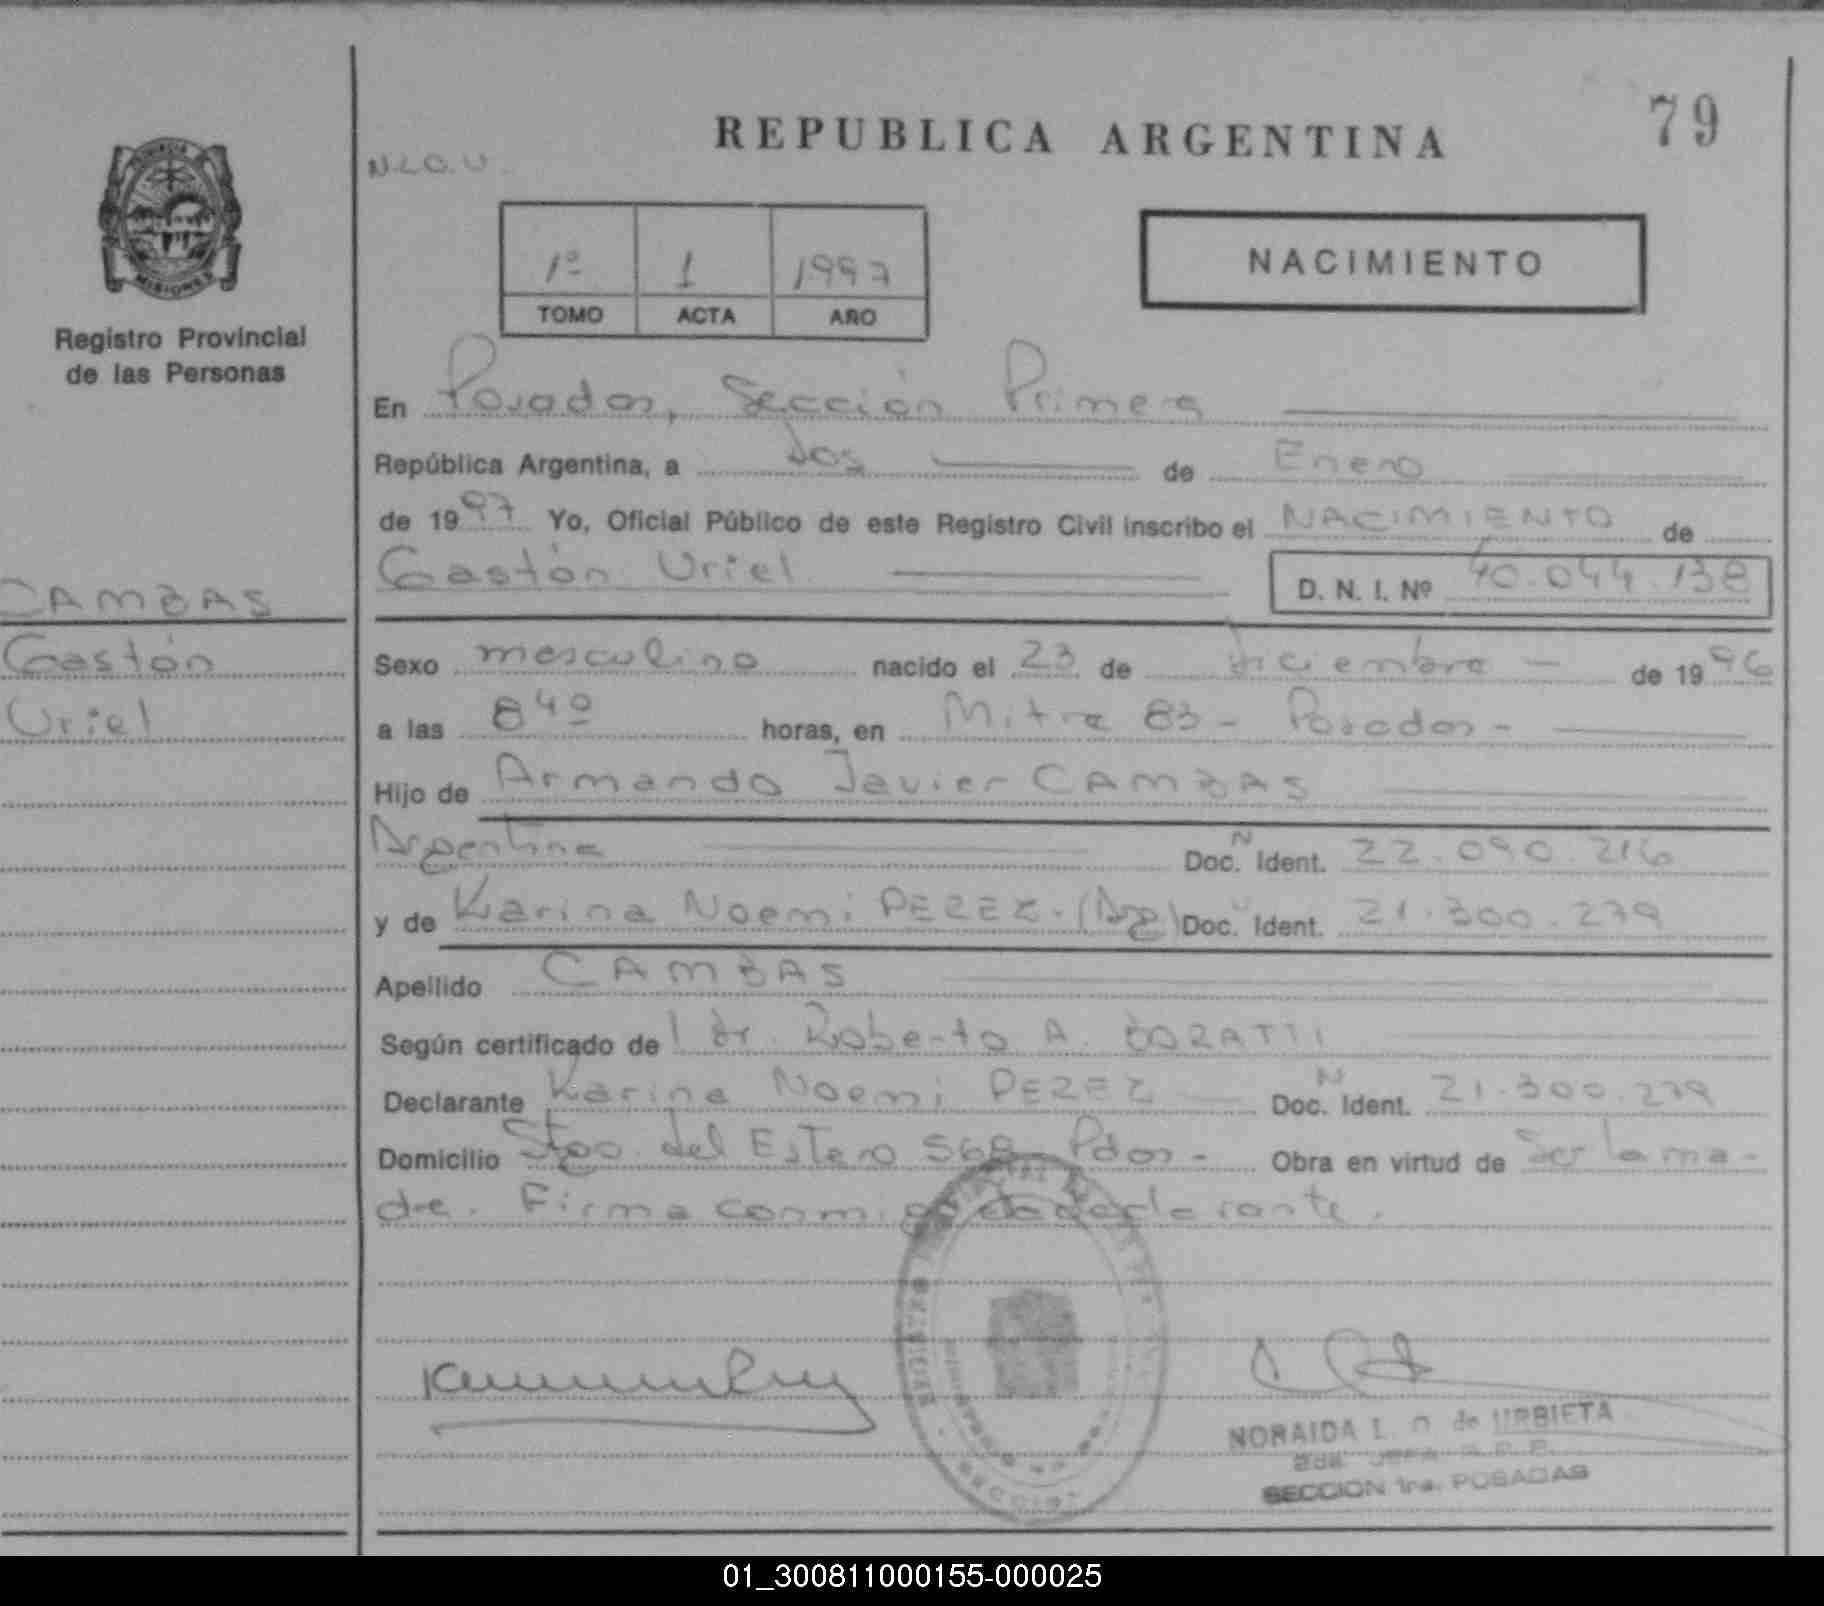 REPUBLICA ARGENTINA
79
N.L.O.U.
PROVINCIA
MISIONES
Registro Provincial
de las Personas
1º 1 1997
TOMO ACTA AÑO
NACIMIENTO
En Posadas, Sección Primera
República Argentina, a dos de Enero
de 1997 Yo, Oficial Público de este Registro Civil inscribo el NACIMIENTO de
Gastón Uriel D. N. I. Nº 40.044.138
CAMBAS
Gastón
Uriel
Sexo masculino nacido el 23 de diciembre de 1996
a las 8 40 horas, en Mitre 83 - Posadas -
Hijo de Armando Javier CAMBAS
Argentina Doc. N Ident. 22.090.216
y de Karina Noemi PEREZ. (Arg) Doc. Ident. 21.300.279
Apellido CAMBAS
Según certificado de l dr. Roberto A. BORATTI
Declarante Karina Noemi PEREZ Doc. N Ident. 21.300.279
Domicilio Stgo. del Estero 568 Pdas - Obra en virtud de Ser la ma-
dre. Firma conmigo la declarante.
NORAIDA L. O. de URBIETA
2da. JEFA R. P. P.
SECCION 1ra. POSADAS
01_300811000155-000025